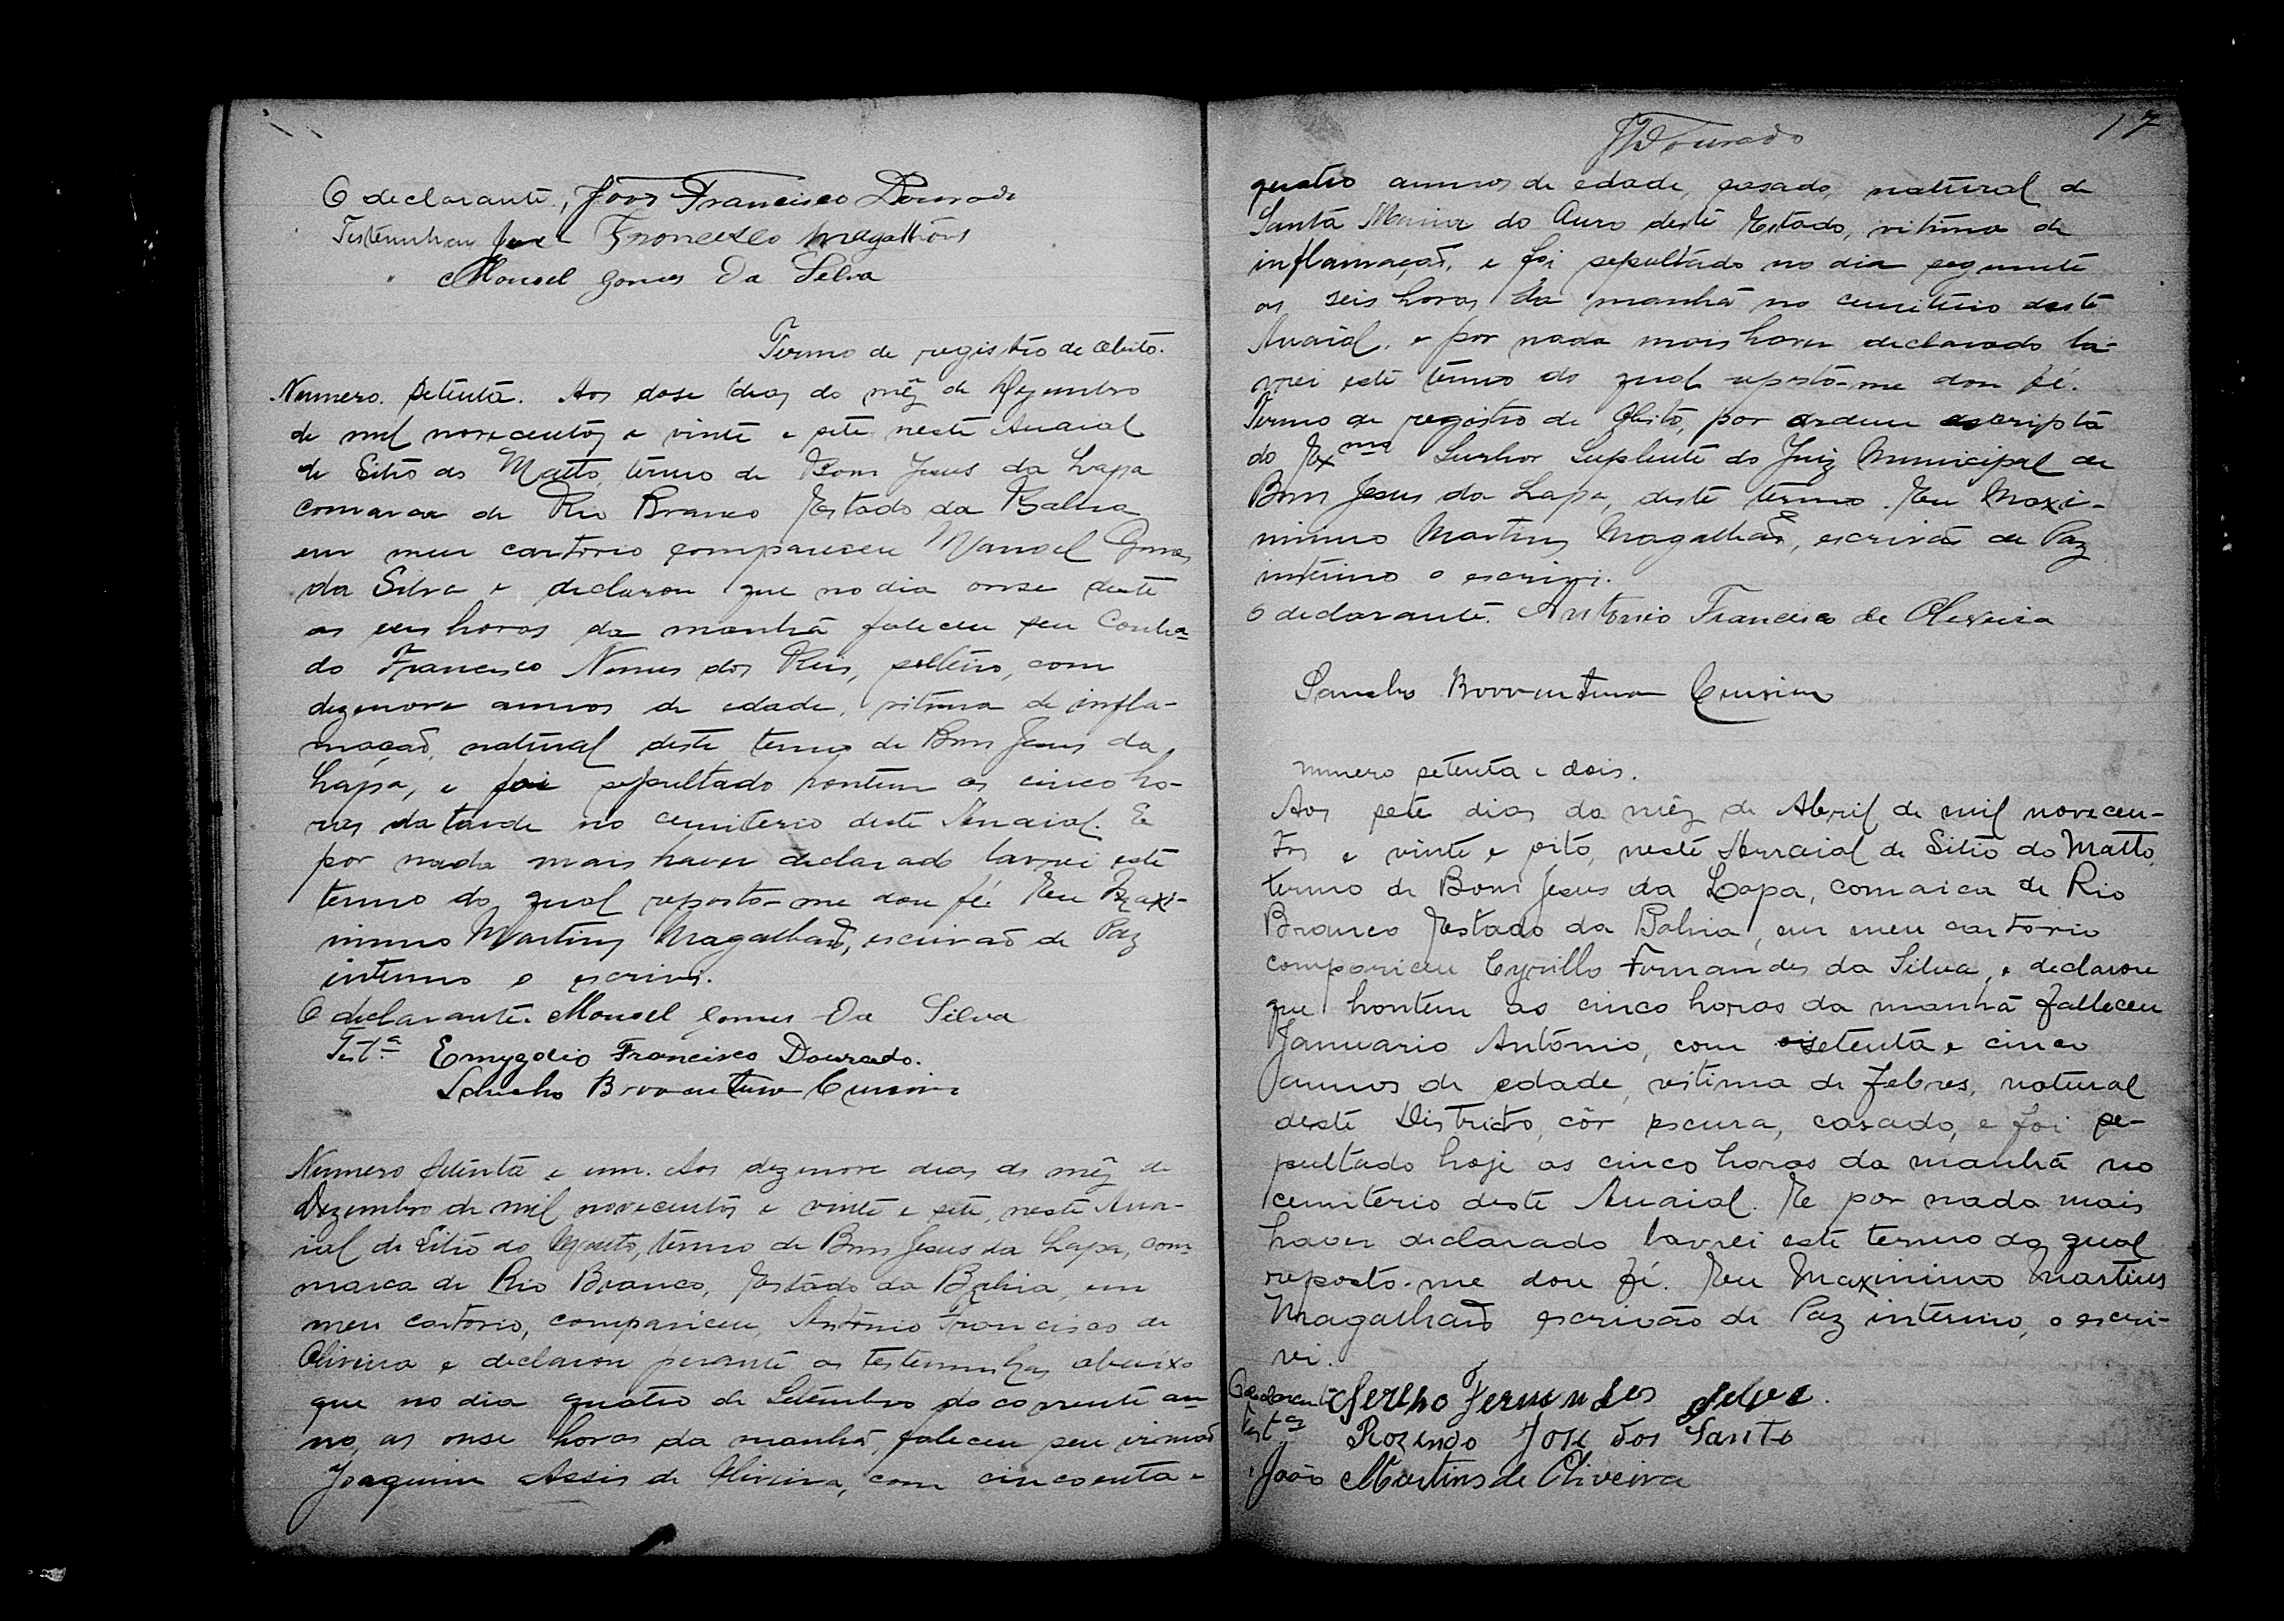 O declarante, João Francisco Dourado
Testemunhas José Francisco Magalhães
Manoel Gomes Da Silva
Termo de registro de obito.
Numero setenta. Aos dose dias do mêz de Dezembro
de mil novecentos e vinte e sete neste Arraial
de Sitio do Matto, termo de Bom Jesus da Lapa
comarca de Rio Branco Estado da Bahia
em meu cartorio compareceu Manoel Gomes
da Silva e declarou que no dia onse deste
as seis horas da manhã faleceu seu Cunha-
do Francisco Nunes dos Reis, solteiro, com
dezenove annos de edade, vitima de infla-
mação, natural deste termo de Bom Jesus da
Lapa, e foi sepultado hontem as cinco ho-
ras da tarde no cemiterio deste Arraial. E
por nada mais haver declarado lavrei este
termo do qual reposto-me dou fé. Eu Maxi-
minno Martins Magalhães, escrivão de Paz
interino o escrivi.
O declarante. Manoel Gomes Da Silva
Test.ª Emygdio Francisco Dourado.
Sancho Boaventura
Numero setenta e um. Aos dezenove dias do mêz de
Dezembro de mil novecentos e vinte e sete, neste Arra-
ial de Sitio do Matto, termo de Bom Jesus da Lapa, com
marca de Rio Branco, Estado da Bahia, em
meu cartorio, compariceu, Antonio Francisco de
Oliveira e declarou perante as testemunhas abaixo
que no dia quatro de Setembro do corrente an-
no, as onse horas da manhã, faleceu seu irmão
Joaquim Assis de Oliveira, com cincoenta e
17
Dourado
quatro annos de edade, casado, natural de
Santa Maria do Ouro deste Estado, vitima de
inflamação, e foi sepultado no dia seguinte
as seis horas da manhã no cemiterio deste
Arraial. e por nada mais haver declarado la-
vrei este termo do qual reposto-me dou fé.
Termo de registro de Obito, por ordem escripta
do Exmo Senhor Suplente do Juiz Municipal de
Bom Jesus da Lapa, deste termo. Eu Maxi-
minno Martins Magalhães, escrivão de Paz
interino o escrivi.
O declarante. Antonio Francisco de Oliveira
Sancho Boaventura
numero setenta e dois.
Aos sete dias do mêz de Abril de mil novecen-
tos e vinte e oito, neste Arraial de Sitio do Matto,
termo de Bom Jesus da Lapa, comarca de Rio
Branco Estado da Bahia, em meu cartorio
compariceu Cyrillo Fernandes da Silva, e declarou
que hontem as cinco horas da manhã falleceu
Januario Antonio, com setenta e cinco
annos de edade, vitima de febres, natural
deste Districto, côr escura, casado, e foi se-
pultado hoje as cinco horas da manhã no
cemiterio deste Arraial. E por nada mais
haver declarado lavrei este termo do qual
reposto-me dou fé. Eu Maximinno Martins
Magalhães escrivão de Paz interino, o escri-
vi.
O declarante Fernandes Silva.
test.as Rozendo Jose dos Santo
João Martins de Oliveira